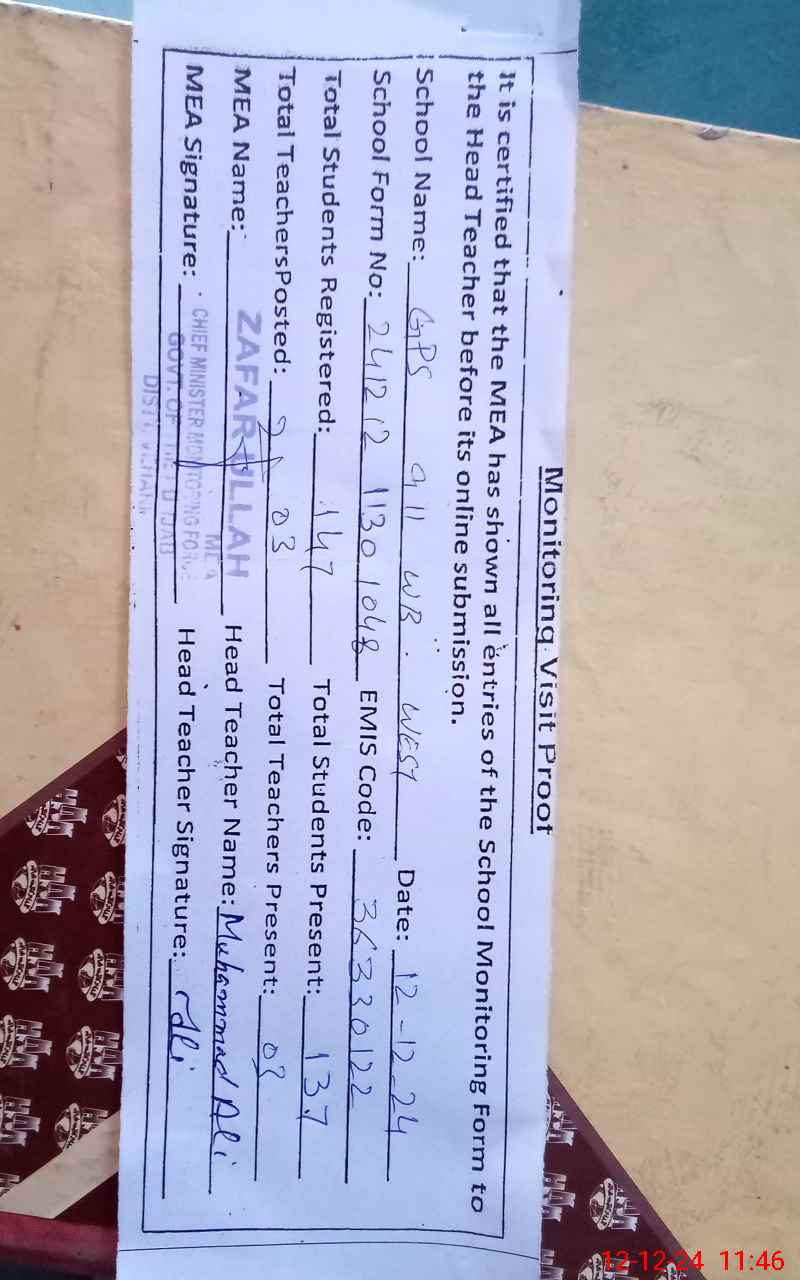 Monitoring Visit Proof
It is certified that the MEA has shown all entries of the School Monitoring Form to
the Head Teacher before its online submission.
School Name: GPS 9 11 WB. WEST Date: 12-12-24
School Form No: 241212 11301048 EMIS Code: 36330122
Total Students Registered: 147 Total Students Present: 137
Total TeachersPosted: 03 Total Teachers Present: 03
MEA Name: ZAFAR ULLAH Head Teacher Name: Muhammad Ali
MEA Signature: Head Teacher Signature: Ali
MEA
CHIEF MINISTER MONITORING FORCE
GOVT. OF THE PUNJAB
DISTT. VEHARI
12-12-24 11:46